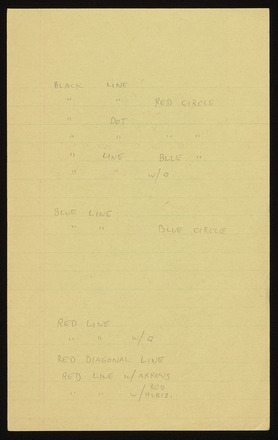 BLACK LINE
" " RED CIRCLE
" DOT
" " " "
" LINE BLUE "
" " w/o
BLUE LINE
" " BLUE CIRCLE
RED LINE
" " w/o
RED DIAGONAL LINE
RED LINE w/ ARROWS
" " w/ RED HORIZ.